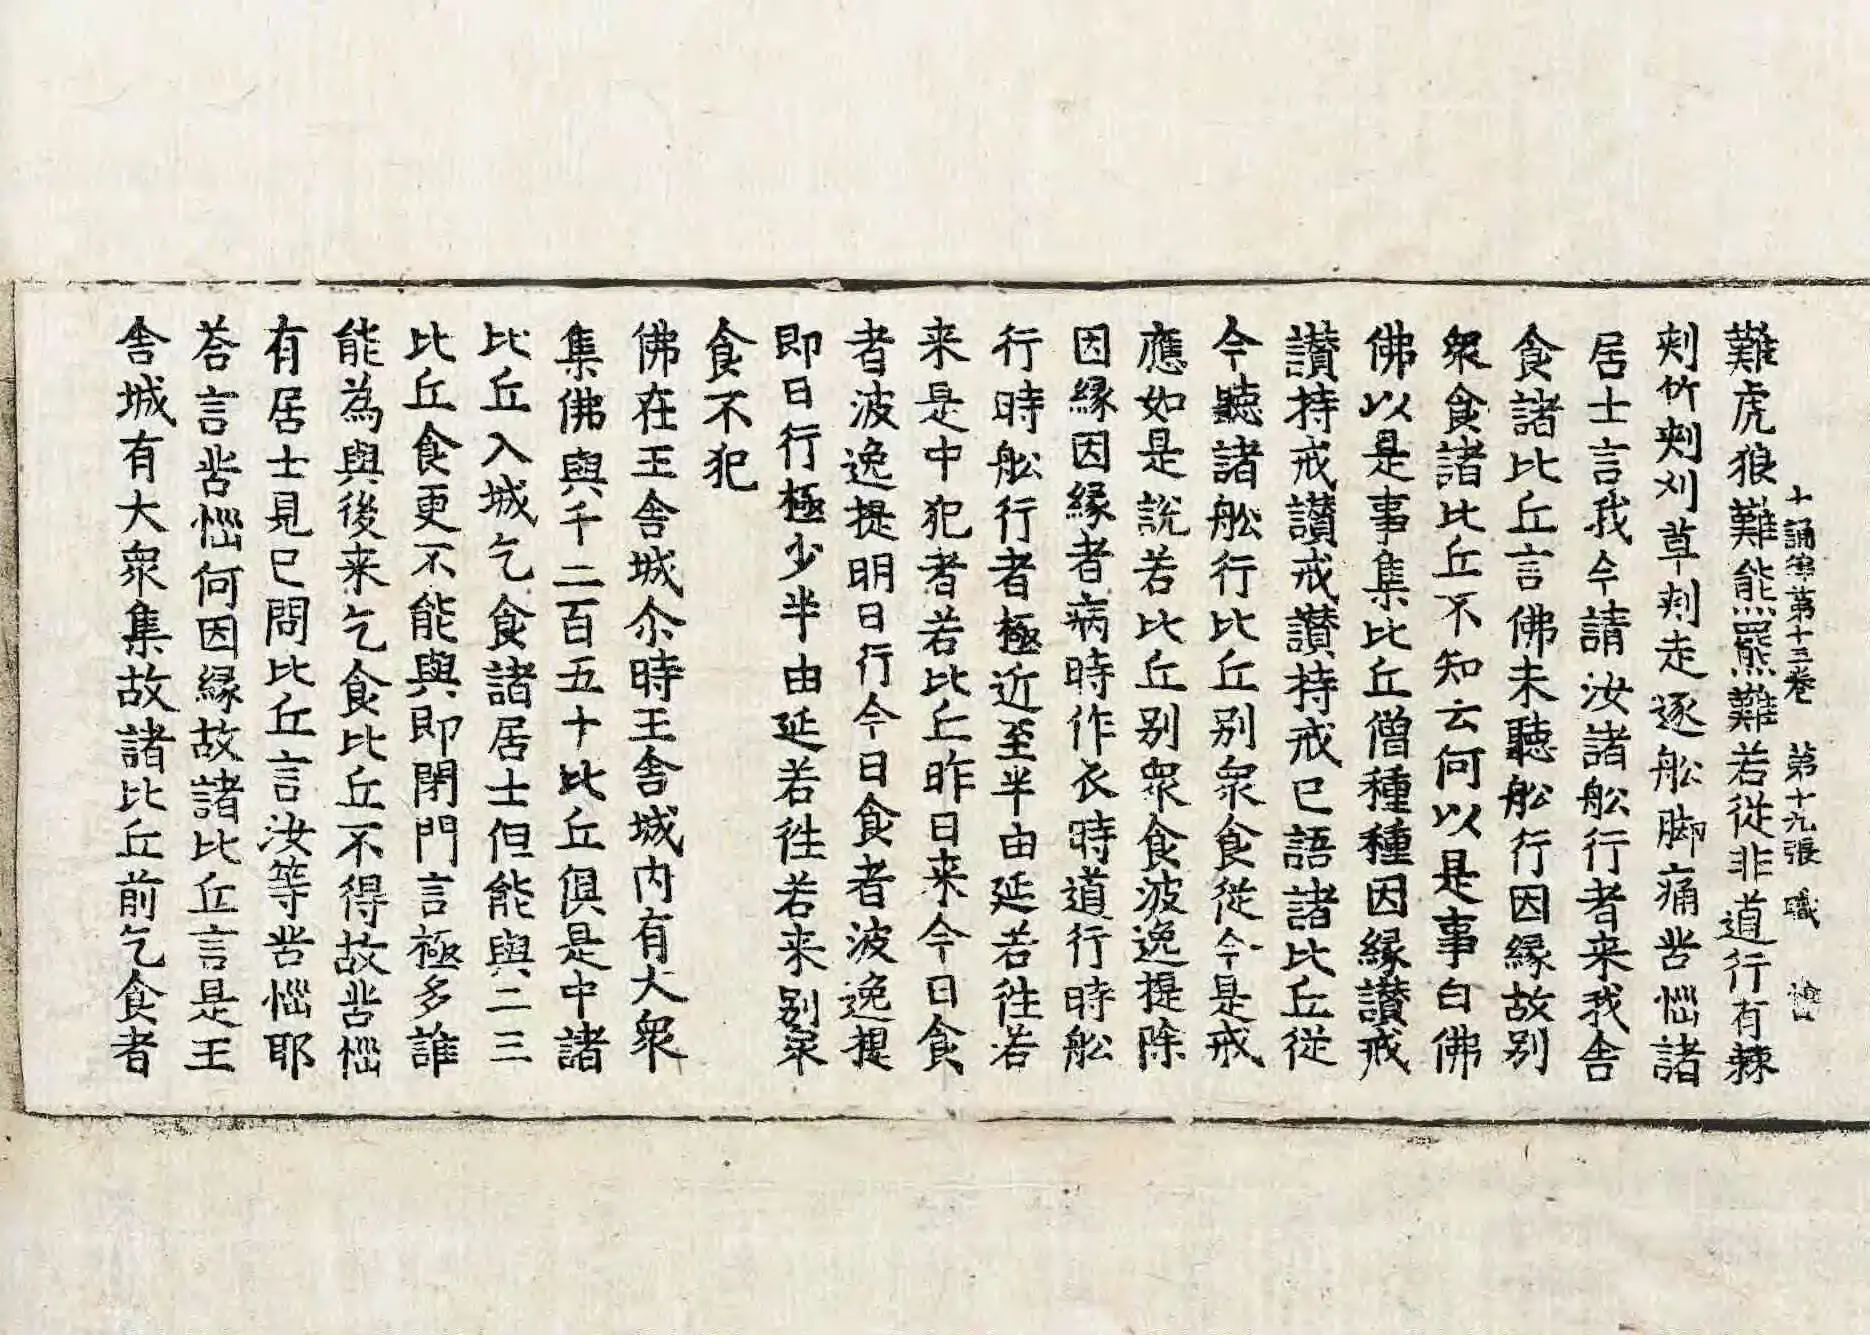 難虎狼難熊羆難若從非道行有棘
十誦律第十三卷 第十九張 職
刺竹刺刈草刺走逐舩脚痛苦惱諸
居士言我今請汝諸舩行者来我舎
食諸比丘言佛未聽舩行因縁故别
衆食諸比丘不知云何以是事白佛
佛以是事集比丘僧種種因縁讃戒
讃持戒讃戒讃持戒已語諸比丘従
今聽諸舩行比丘别衆食従今是戒
應如是説若比丘别衆食波逸提除
因縁因縁者病時作衣時道行時舩
行時舩行者極近至半由延若往若
来是中犯者若比丘昨日来今日食
者波逸提明日行今日食者波逸提
即日行極少半由延若往若来别衆
食不犯
佛在王舎城尒時王舎城内有大衆
集佛與千二百五十比丘俱是中諸
比丘入城乞食諸居士但能與二三
比丘食更不能與即閇門言極多誰
能為與後来乞食比丘不得故苦惱
有居士見已問比丘言汝等苦惱耶
荅言苦惱何因縁故諸比丘言是王
舎城有大衆集故諸比丘前乞食者